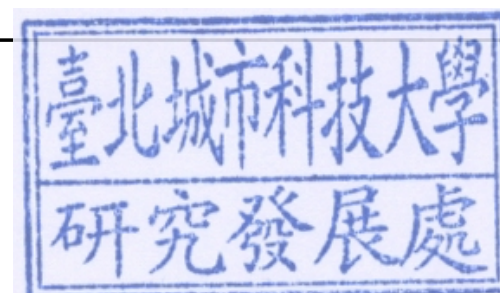 臺北城市科技大學
研究發展處